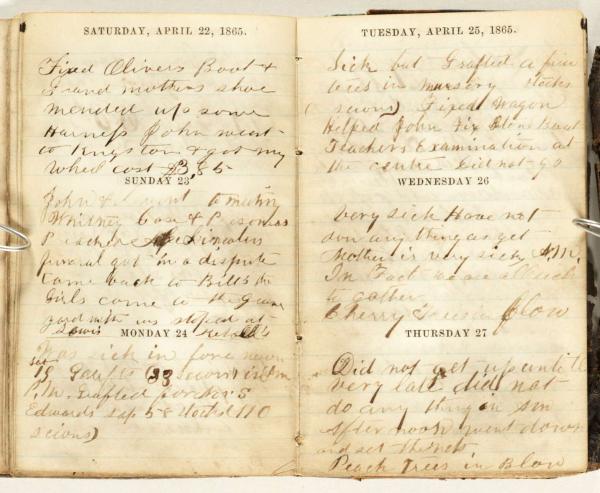 SATURDAY, APRIL 22, 1865.
Fixed Olivers Boot &
Grand mothers shoe
mended up some
Harness John went
to Kingston & got my
Wheel cost $3,85
SUNDAY 23
John & I went to meeting
Whitney Case &
Preacher
funeral got in a dispute
Came back to Bills the
Girls come to the Grave
yard with us stoped at
Lewis
MONDAY 24
Was sick in fore noon
Set 18 Grafts (33 scions)
P.M. Grafted for
Edwards Sap 58 stocks 110
scions)
TUESDAY, APRIL 25, 1865.
Sick but Grafted a few
trees in nursery stocks
scions) Fixed Wagon
Helped John Fix Stone Boat
Teachers Examination at
the centre Did not go
WEDNESDAY 26
Very sick Have not
don any thing as yet
Mother is very sick A.M.
In Fact we are all sick
to gather
Cherry Trees in Blow
THURSDAY 27
Did not get up until
very late did not
do any thing in
After noon went down
and set the nets
Peach Trees in Blow